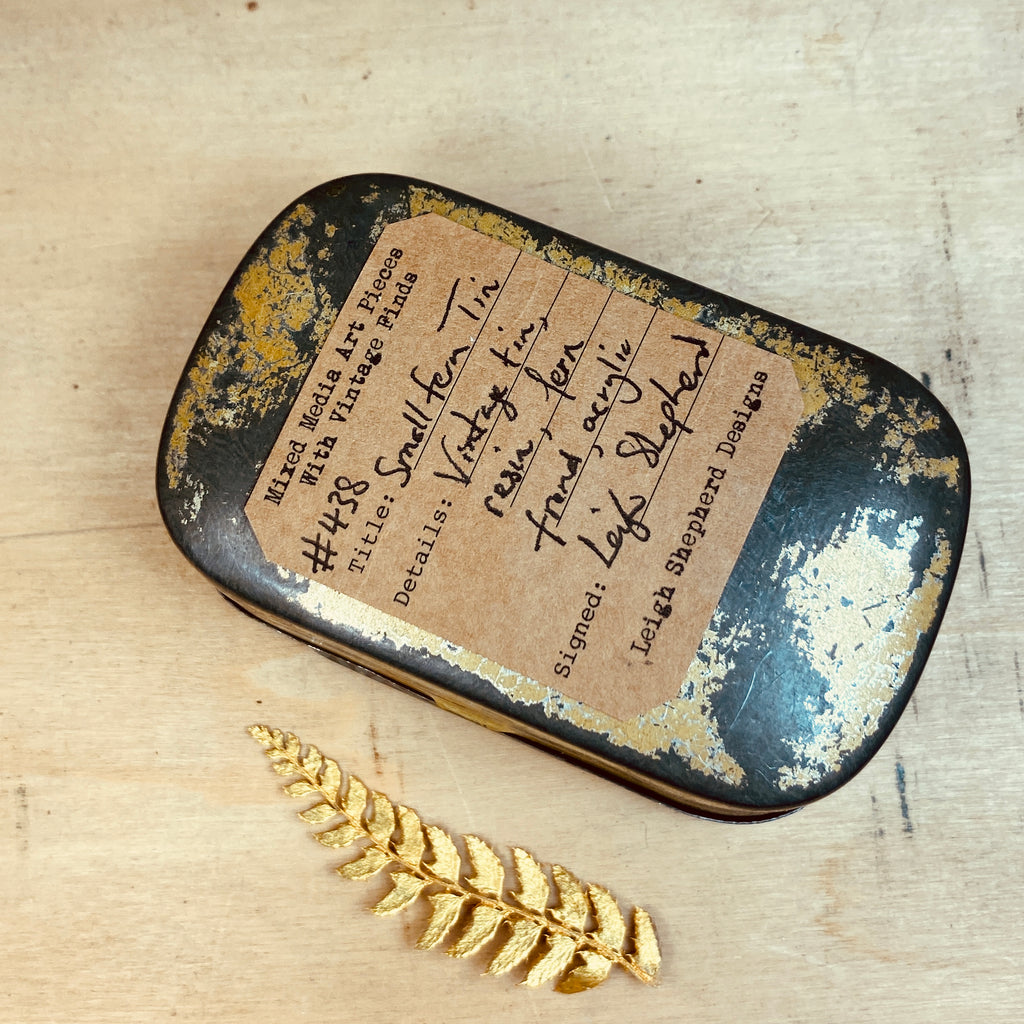 Mixed Media Art Pieces
With Vintage Finds
#438
Title: Small Fern Tin
Details: Vintage tin,
resin, fern
frond, acrylic
Signed: Leigh Shepherd
Leigh Shepherd Designs